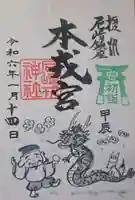 摂州
尼崎
本戎宮
神社
甲辰
令和六年一月十四日